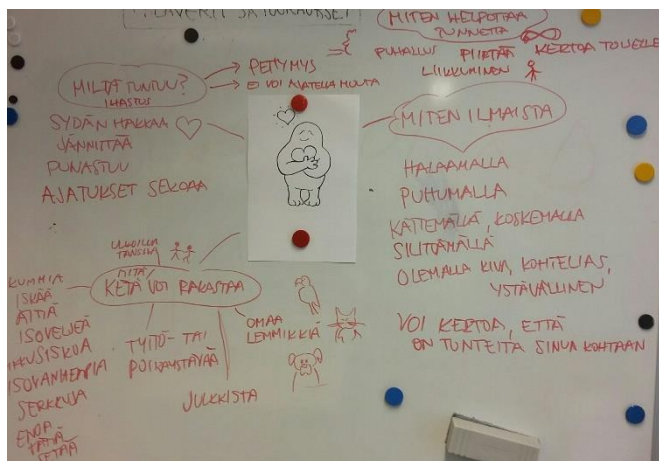 MITEN HELPOTTAA
TUNNETTA
PUHALLUS PIIRTÄÄ KERTOA TOISELLE
LIIKKUMINEN
PETTYMYS
EI VOI AJATELLA MUUTA
MILTÄ TUNTUU?
IHASTUS
SYDÄN HAKKAA
JÄNNITTÄÄ
PUNASTUU
AJATUKSET SEKOAA
MITEN ILMAISTA
HALAAMALLA
PUHUMALLA
KÄTTEMÄLLÄ, KOSKEMALLA
SILITTÄMÄLLÄ
OLEMALLA KIVA, KOHTELIAS,
YSTÄVÄLLINEN
VOI KERTOA, ETTÄ
ON TUNTEITA SINUA KOHTAAN
ULKOILLA
TANSSIA
MITÄ
KETÄ VOI RAKASTAA
KUMMIA
ISKÄÄ
ÄITIÄ
ISOVELJEÄ
PIKKUSISKOA
ISOVANHEMPIA
SERKKUJA
ENOA
TÄTIÄ
SETÄÄ
TYTTÖ- TAI
POIKAYSTÄVÄÄ
JULKKISTA
OMAA
LEMMIKKIÄ